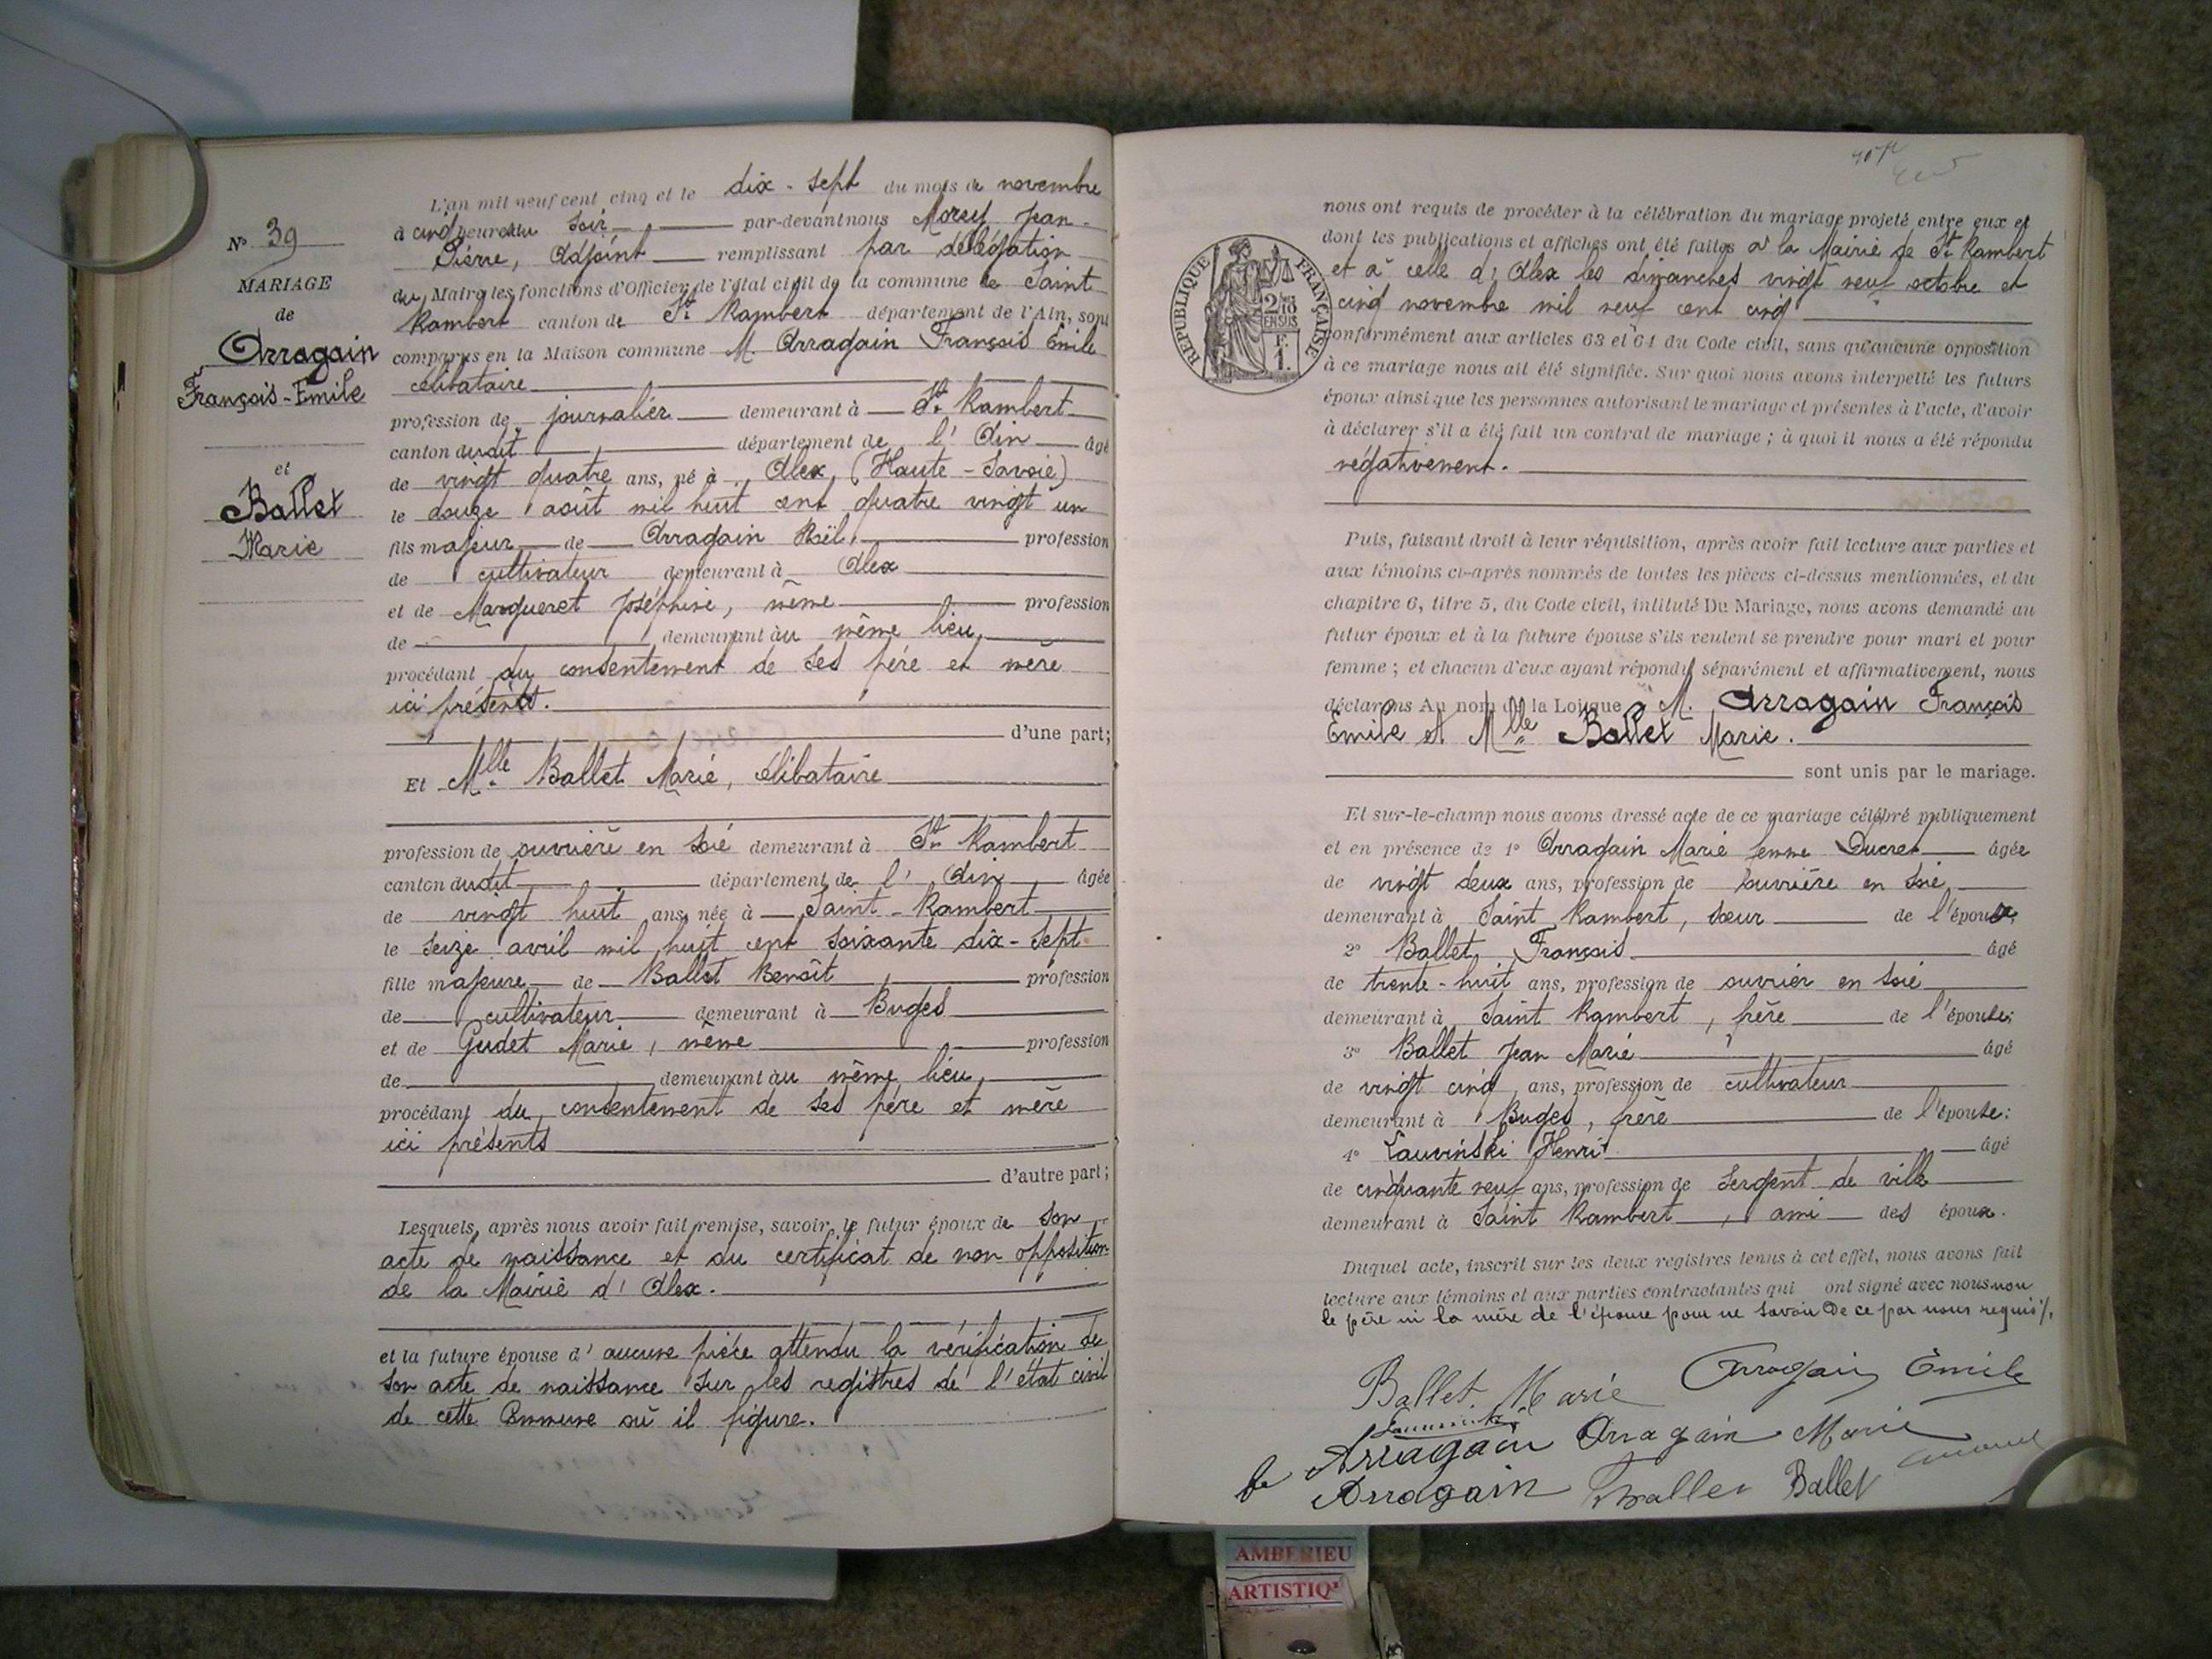 N° 39
MARIAGE
de
Arragain
François-Emile
et
Ballet
Marie
L'an mil neuf cent cinq et le dix-sept du mois de novembre
à cinq heures du soir par-devant nous Morey Jean-
Pierre, Adjoint remplissant par délégation
du Maire les fonctions d'Officier de l'état civil de la commune de Saint
Rambert canton de St Rambert département de l'Ain, sont
comparus en la Maison commune M. Arragain François Emile
célibataire
profession de journalier demeurant à St Rambert
canton dudit département de l'Ain âgé
de vingt quatre ans, né à Alex, (Haute-Savoie)
le douze août mil huit cent quatre vingt un
fils majeur de Arragain Noël, profession
de cultivateur demeurant à Alex
et de Marqueret Joséphine, même profession
de demeurant au même lieu,
procédant du consentement de ses père et mère
ici présents.
d'une part;
Et Mlle Ballet Marie, célibataire
profession de ouvrière en soie demeurant à St Rambert
canton dudit département de l'Ain âgée
de vingt huit ans, née à Saint-Rambert
le seize avril mil huit cent soixante dix-sept
fille majeure de Ballet Benoît profession
de cultivateur demeurant à Buges
et de Gudet Marie, même profession
de demeurant au même lieu,
procédant du consentement de ses père et mère
ici présents
d'autre part;
Lesquels, après nous avoir fait remise, savoir, le futur époux de son
acte de naissance et du certificat de non opposition
de la Mairie d'Alex.
et la future épouse d'aucune pièce attendu la vérification de
son acte de naissance sur les registres de l'état civil
de cette Commune où il figure.
nous ont requis de procéder à la célébration du mariage projeté entre eux et
dont les publications et affiches ont été faites à la Mairie de St Rambert
et à celle d'Alex les dimanches vingt neuf octobre et
cinq novembre mil neuf cent cinq
RÉPUBLIQUE FRANÇAISE
2/10 EN SUS
F. 1.
conformément aux articles 63 et 64 du Code civil, sans qu'aucune opposition
à ce mariage nous ait été signifiée. Sur quoi nous avons interpellé les futurs
époux ainsi que les personnes autorisant le mariage et présentes à l'acte, d'avoir
à déclarer s'il a été fait un contrat de mariage; à quoi il nous a été répondu
négativement.
Puis, faisant droit à leur réquisition, après avoir fait lecture aux parties et
aux témoins ci-après nommés de toutes les pièces ci-dessus mentionnées, et du
chapitre 6, titre 5, du Code civil, intitulé Du Mariage, nous avons demandé au
futur époux et à la future épouse s'ils veulent se prendre pour mari et pour
femme; et chacun d'eux ayant répondu séparément et affirmativement, nous
déclarons Au nom de la Loi que M. Arragain François
Emile et Mlle Ballet Marie.
sont unis par le mariage.
Et sur-le-champ nous avons dressé acte de ce mariage célébré publiquement
et en présence de 1° Arragain Marie femme Ducret âgée
de vingt deux ans, profession de ouvrière en soie
demeurant à Saint Rambert, sœur de l'époux;
2° Ballet François âgé
de trente-huit ans, profession de ouvrier en soie
demeurant à Saint Rambert, frère de l'épouse;
3° Ballet Jean Marie âgé
de vingt cinq ans, profession de cultivateur
demeurant à Buges, frère de l'épouse:
4° Lauvinski Henri âgé
de cinquante neuf ans, profession de Sergent de ville
demeurant à Saint Rambert, ami des époux.
Duquel acte, inscrit sur les deux registres tenus à cet effet, nous avons fait
lecture aux témoins et aux parties contractantes qui ont signé avec nous non
le père ni la mère de l'épouse pour ne savoir De ce par nous requis %.
Ballet Marie Arragain Emile
Arragain Arragain Marie
Arragain Ballet Ballet
AMBERIEU
ARTISTIQ